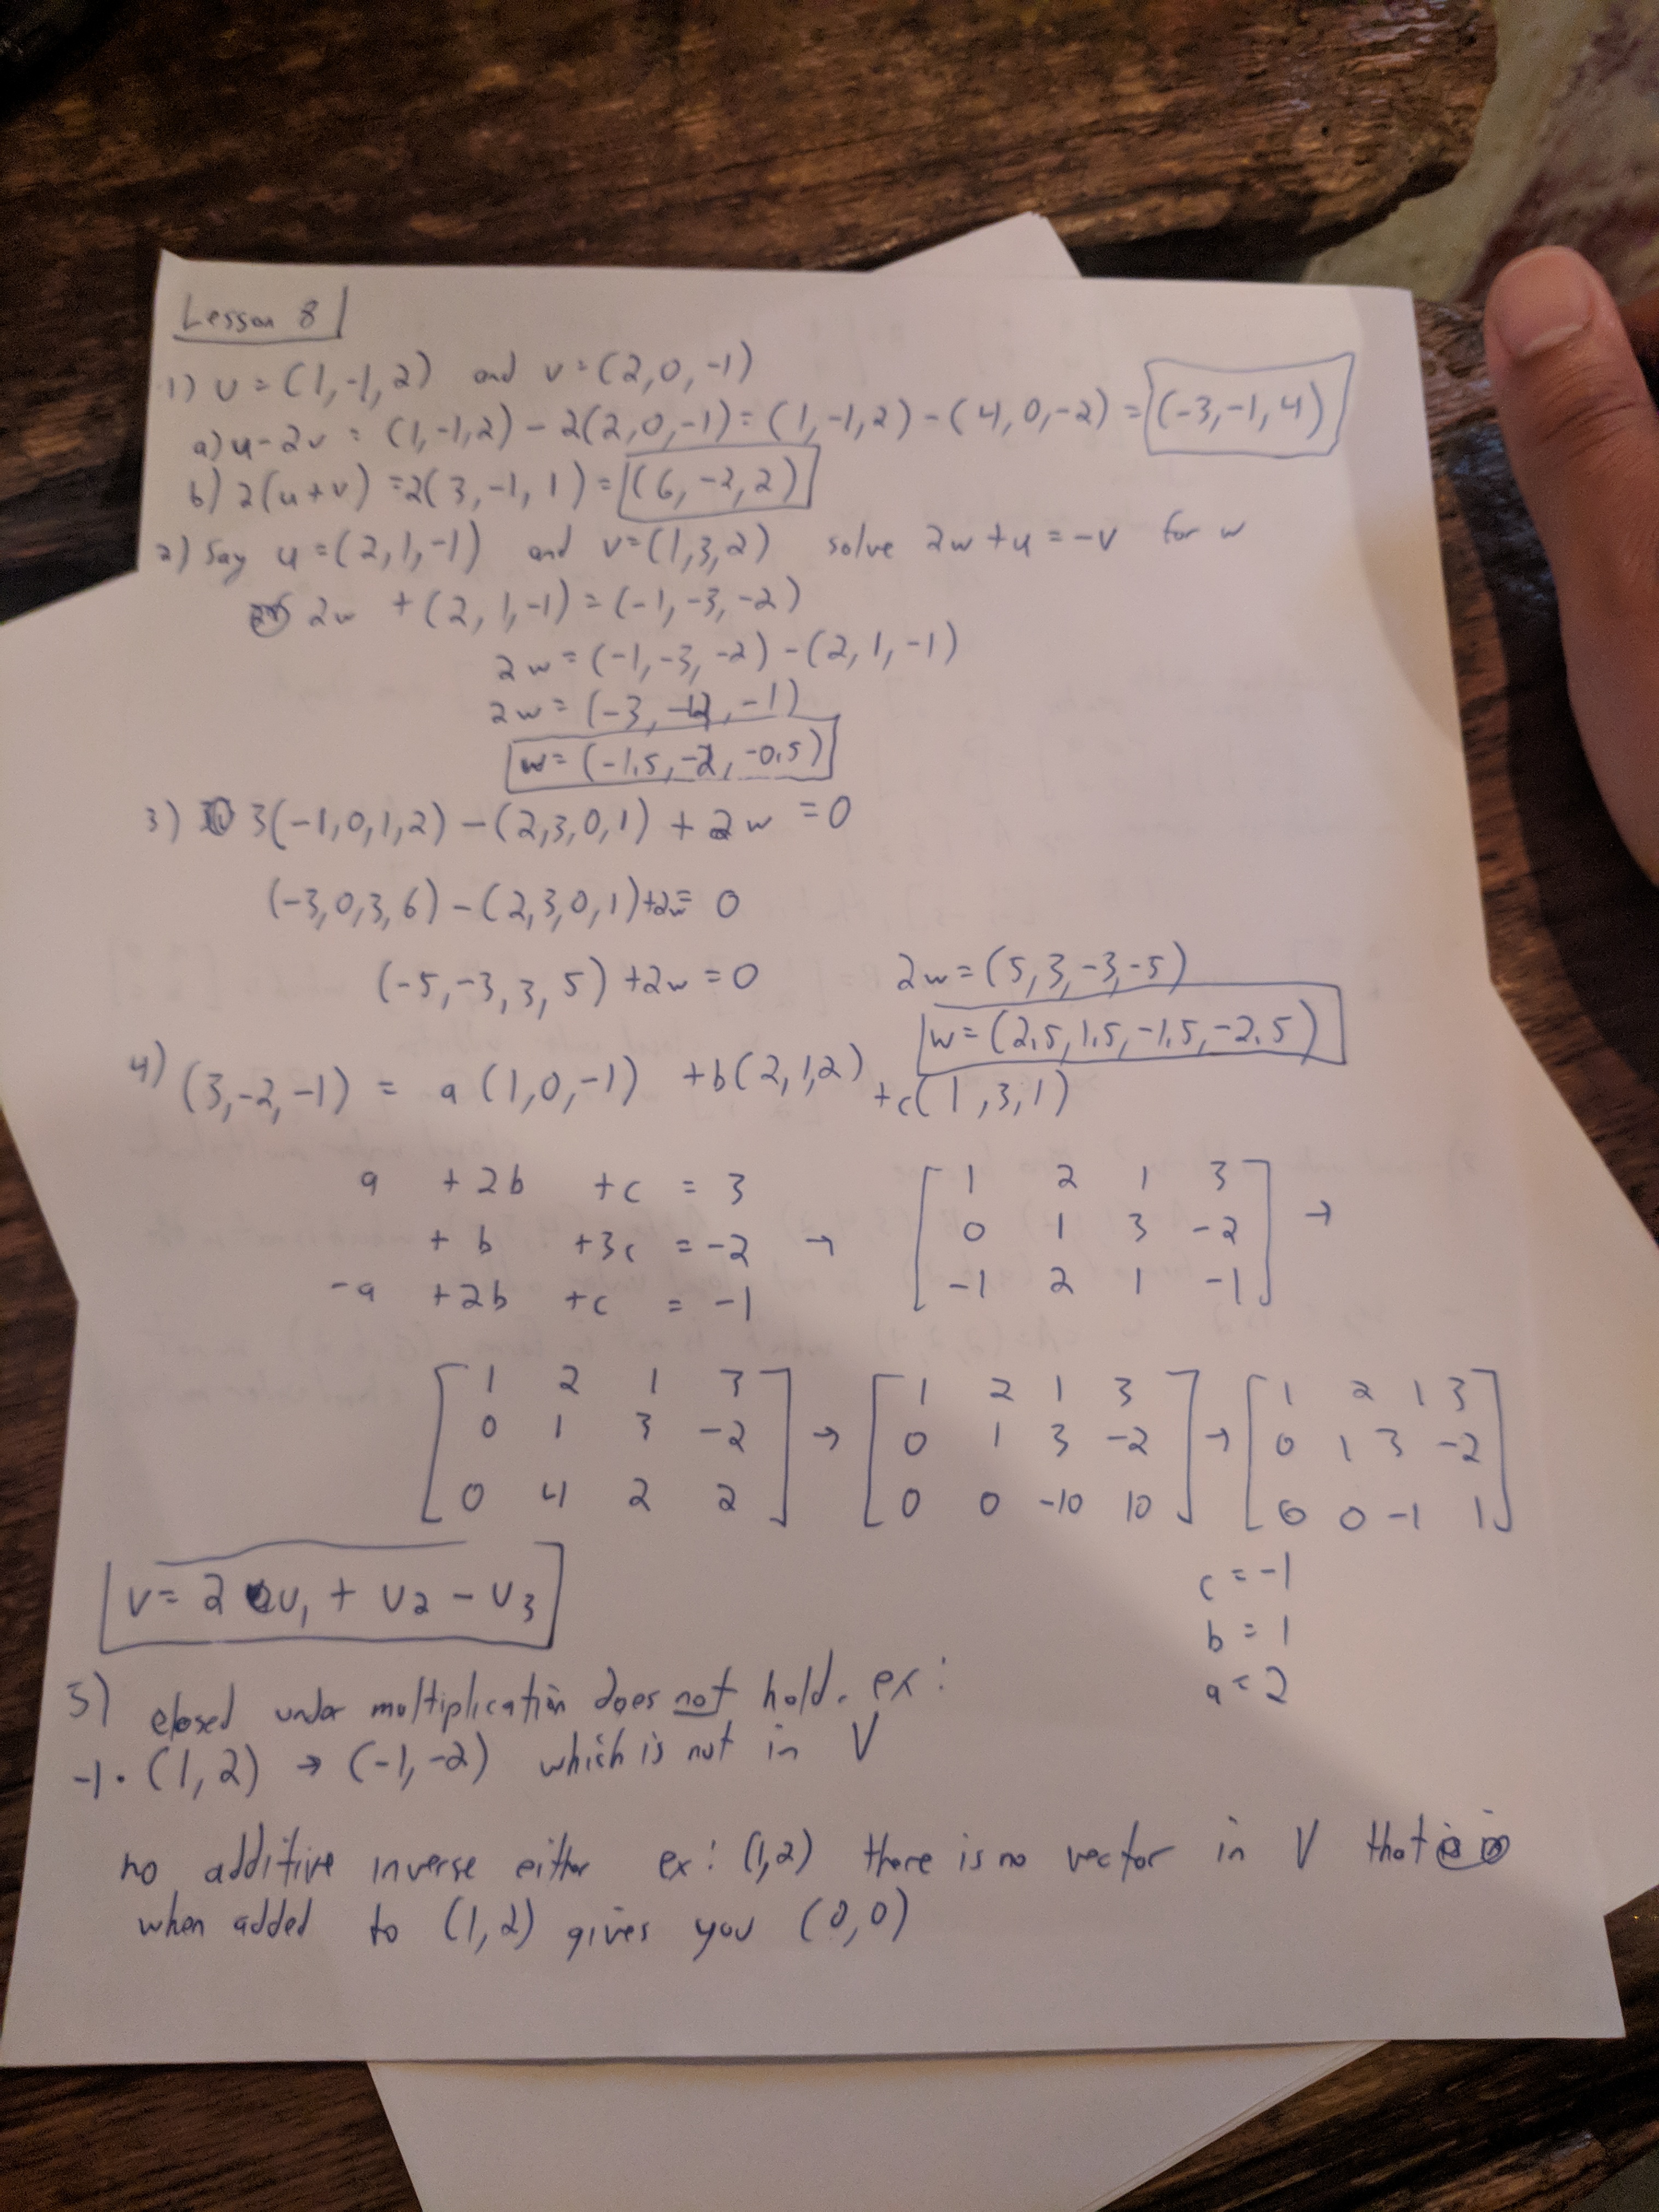 Lesson 8
1) u = (1,-1,2) and v=(2,0,-1)
a) u-2v = (1,-1,2) - 2(2,0,-1) = (1,-1,2) - (4,0,-2) = (-3,-1,4)
b) 2(u+v) =2(3,-1,1) = (6,-2,2)
2) Say u=(2,1,-1) and v=(1,3,2) solve 2w+u=-v for w
2w + (2,1,-1) = (-1,-3,-2)
2w = (-1,-3,-2) - (2,1,-1)
2w = (-3,-4,-1)
w= (-1.5,-2,-0.5)
3) 3(-1,0,1,2) - (2,3,0,1) + 2w = 0
(-3,0,3,6) - (2,3,0,1)+2w= 0
(-5,-3,3,5) +2w = 0 2w = (5,3,-3,-5)
w = (2.5,1.5,-1.5,-2.5)
4) (3,-2,-1) = a (1,0,-1) +b(2,1,2) +c(1,3,1)
a +2b +c = 3 [1 2 1 3
+ b +3c = -2 → 0 1 3 -2 →
-a +2b +c = -1 -1 2 1 -1]
[1 2 1 3 [1 2 1 3 [1 2 1 3
0 1 3 -2 → 0 1 3 -2 → 0 1 3 -2
0 4 2 2] 0 0 -10 10] 0 0 -1 1]
c = -1
v= 2 u1 + u2 - u3
b = 1
a = 2
5) closed under multiplication does not hold. ex:
-1·(1,2) → (-1,-2) which is not in V
no additive inverse either ex: (1,2) there is no vector in V that
when added to (1,2) gives you (0,0)